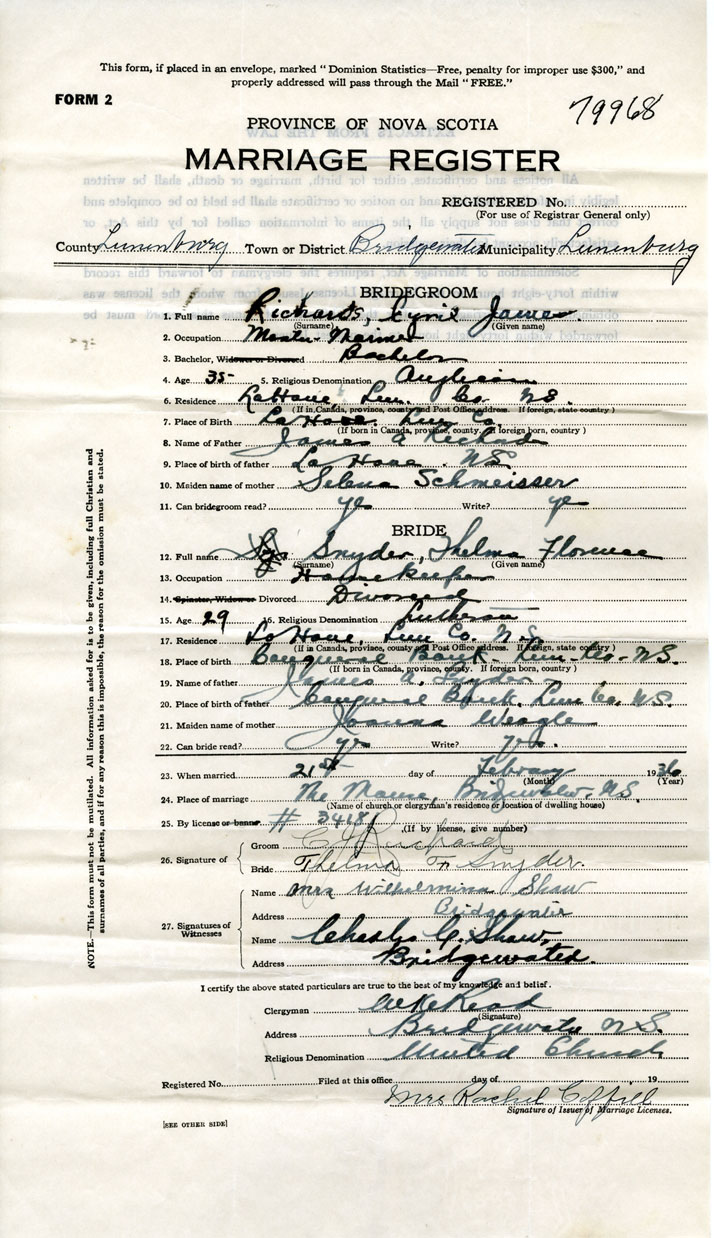 This form, if placed in an envelope, marked "Dominion Statistics—Free, penalty for improper use $300," and
properly addressed will pass through the Mail "FREE."
FORM 2
79968
PROVINCE OF NOVA SCOTIA
MARRIAGE REGISTER
REGISTERED No.
(For use of Registrar General only)
County Lunenburg Town or District Bridgewater Municipality Lunenburg
BRIDEGROOM
1. Full name Richards, Cyril James
(Surname) (Given name)
2. Occupation Master Mariner
3. Bachelor, Widower or Divorced Bachelor
4. Age 35 5. Religious Denomination Anglican
6. Residence LaHave, Lun. Co. N.S.
(If in Canada, province, county and Post Office address. If foreign, state country)
7. Place of Birth LaHave, Lun Co.
(If born in Canada, province, county. If foreign born, country)
8. Name of Father James A Richards
9. Place of birth of father LaHave N.S.
10. Maiden name of mother Selena Schmeisser
11. Can bridegroom read? yes Write? yes
BRIDE
12. Full name Snyder, Thelma Florence
(Surname) (Given name)
13. Occupation Housekeeper
14. Spinster, Widow or Divorced Divorced
15. Age 29 16. Religious Denomination Lutheran
17. Residence LaHave, Lun Co. N.S.
(If in Canada, province, county and Post Office address. If foreign, state country)
18. Place of birth Conquerall Bank, Lun. Co. N.S.
(If born in Canada, province, county. If foreign born, country)
19. Name of father James A. Snyder
20. Place of birth of father Conquerall Bank, Lun Co. N.S.
21. Maiden name of mother Joanna Weagle
22. Can bride read? yes Write? yes.
23. When married 21st day of February 1936
(Month) (Year)
24. Place of marriage The Manse, Bridgewater, N.S.
(Name of church or clergyman's residence or location of dwelling house)
25. By license or banns # ,(If by license, give number)
26. Signature of Groom C J Richards
Bride Thelma F Snyder.
27. Signatures of Witnesses
Name Mrs Wilhelmina Shaw
Address Bridgewater
Name Charles C. Shaw,
Address Bridgewater.
I certify the above stated particulars are true to the best of my knowledge and belief.
Clergyman
(Signature)
Address Bridgewater N.S.
Religious Denomination United Church
Registered No. Filed at this office day of , 19
Mrs Rachel
Signature of Issuer of Marriage Licenses.
[SEE OTHER SIDE]
NOTE.—This form must not be mutilated. All information asked for is to be given, including full Christian and
surnames of all parties, and if for any reason this is impossible, the reason for the omission must be stated.